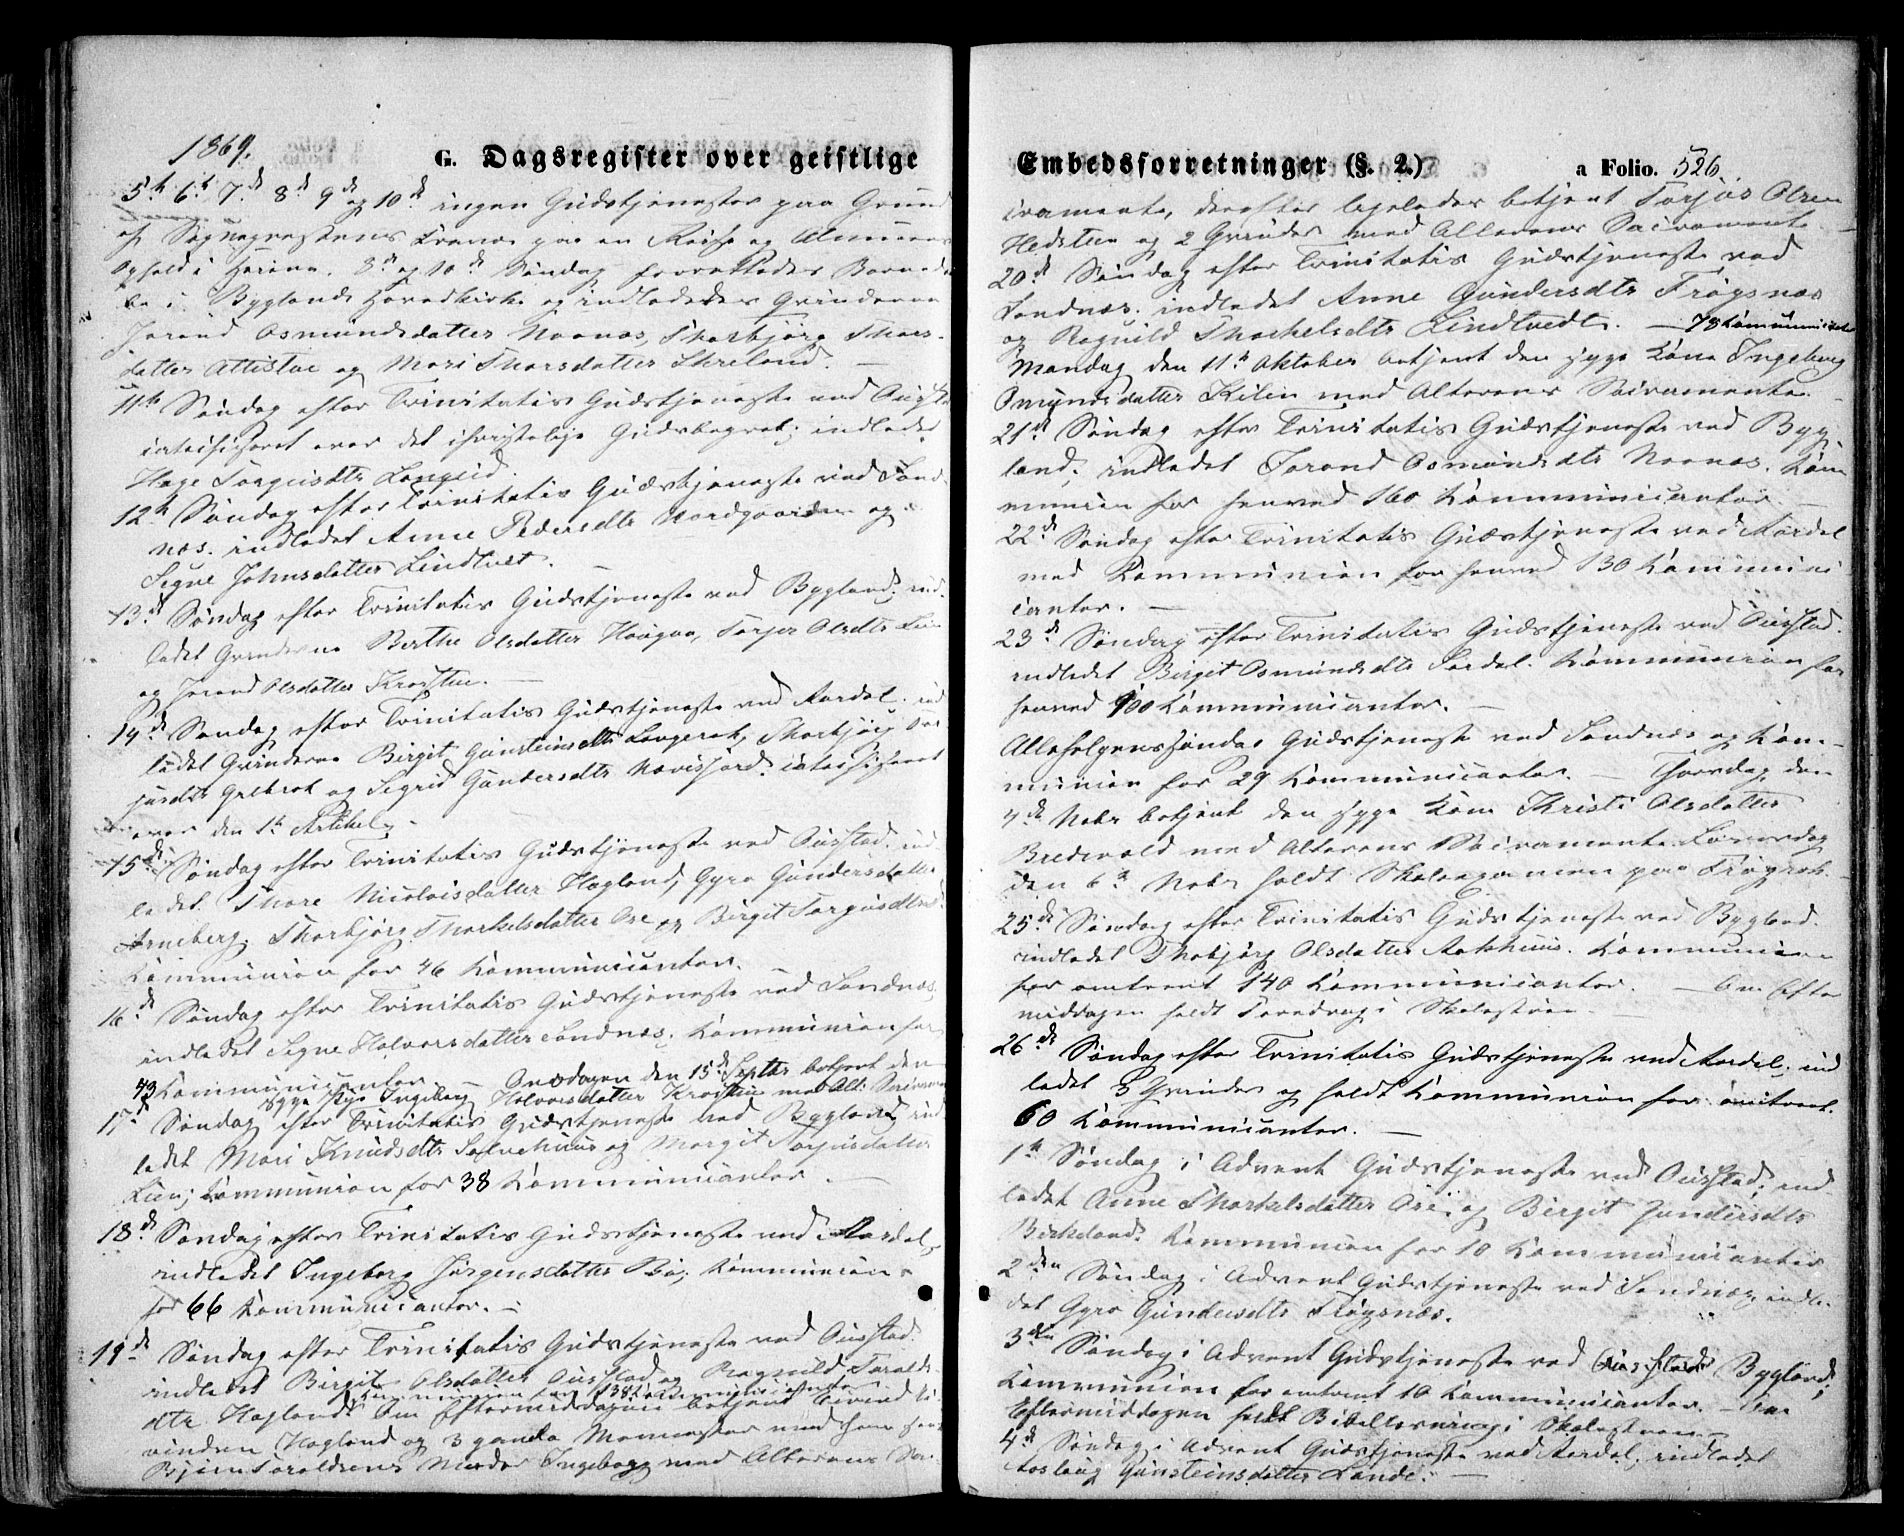 1869.
G. Dagsregister over geistlige
5te 6te 7de 8de 9de og 10de ingen Gudstjenester paa Grund
af Sognepræstens paa en Reise og
Ophold i 8de og 10de Søndag
i Byglands Hovedkirke og indledede Qvinderne
Jorand Osmundsdatter Noonæs, Thorbjørg Thors-
datter Attistøe og Mari Thorsdatter Skreland. —
11te Søndag efter Trinitatis Gudstjeneste ved Ousta
catechiseret over det christelige Gudsbegreb; indledet
Hæge Torgusdtr Longeid.
12te Søndag efter Trinitatis Gudstjeneste ved Sand-
næs. indledet Anne Pedersdtr Nordgaarden og
Signe Johnsdatter Lindtvet.
13de Søndag efter Trinitatis Gudstjeneste ved Bygland; ind-
ledet Qvinderne Berthe Olsdatter Haugaa, Torjer Olsdtr
og Jorand Olsdatter Frøsten. —
14de Søndag efter Trinitatis Gudstjeneste ved Aardal. ind
ledet Qvinderne Birgit Gunsteinsdtr Langerak, Thorbjørg
Grebrok og Sigrid Gundersdtr Nævisfjord. catechiseret
over den 1te Artikel. -
15de Søndag efter Trinitatis Gudstjeneste ved Oustad. ind
ledet Thore Nicolaisdatter Hagland, Gyro Gundersdatter
Arneberg. Thorbjørg Thorkelsdatter Ose og Birgit Torgusdtr
Kommunion for 46 Kommunicanter.
16de Søndag efter Trinitatis Gudstjeneste ved Sandnæs,
indledet Signe Halvorsdatter Sandnæs. Kommunion for
43 Kommunicanter — Onsdagen den 15de Septbr betjent den
syge Pige Ingeborg Halvorsdatter Frøsten med Alt: Sacrame
17de Søndag efter Trinitatis Gudstjeneste ved Bygland, ind
ledet Mari Knudsdtr Sølvehuus og Margit Torjusdatter
Lien; Kommunion for 38 Kommunicanter. —
18de Søndag efter Trinitatis Gudstjeneste ved Aardal,
indledet Ingeborg Jørgensdatter Bø; Kommunion
for 66 Kommunicanter. —
19de Søndag efter Trinitatis Gudstjeneste ved Oustad.
indledet Birgit Olsdatter Oustad og Ragnild Taralds
Kommunion for 138 Kommunicanter
dtr Hagland. Om Eftermiddagen betjent Eivind
vinden Hagland og 3 gamle Mennesker med
Bjørn Taraldsens Moder Ingeborg med Alterens Sa-
Embedsforretninger (§. 2.) a Folio. 526.
cramente, derefter ligeledes betjent Torjus Olsen
Hedsteen og 2 Qvinder med Alterens Sacramente. —
20de Søndag efter Trinitatis Gudstjeneste ved
Sandnæs. indledet Anne Gundersdtr Frøysnæs
og Ragnild Thorkelsdtr Lindtvedt. — 78 Kommunicater
Mandag den 11te Oktober betjent den syge Kone Ingeborg
Omundsdatter Kilen med Alterens Sacramente. —
21de Søndag efter Trinitatis Gudstjeneste ved Byg-
land; indledet Jorand Osmundsdtr Noonæs. Kom
munion for henved 160 Kommunicanter. —
22de Søndag efter Trinitatis Gudstjeneste ved Aardal
med Kommunion for henved 130 Kommuni
canter. —
23de Søndag efter Trinitatis Gudstjeneste ved Oustad.
indledet Birgit Osmundsdtr Sordal. Kommunion for
henved 100 Kommunicanter. —
Allehelgenssøndag Gudstjeneste ved Sandnæs og Kom-
munion for 29 Kommunicanter. — Thorsdag den
4de Novbr betjent den syge Kone Kristi Olsdatter
Bredvold med Alterens Sacramente. Løverdag
den 6te Novbr holdt Skoleexamen paa Frøyrak. —
25de Søndag efter Trinitatis Gudstjeneste ved Bygland.
indledet Thobjørg Olsdatter Aakhuus. Kommunion
for omtrent 140 Kommunicanter. — Om Efter
middagen holdt Foredrag i Skolestuen. —
26de Søndag efter Trinitatis Gudstjeneste ved Aardal, ind
ledet 3 Qvinder og holdt Kommunion for omtrent
60 Kommunicanter. —
1te Søndag i Advent Gudstjeneste ved Oustad; ind-
ledet Anne Thorkelsdatter Ose; og Birgit Gundersdtr
Birkeland. Kommunion for 10 Kommunicanter
2den Søndag i Advent Gudstjeneste ved Sandnæs, indle-
det Gyro Gundersdtr Frøysnæs.
3die Søndag i Advent Gudstjeneste ved Bygland;
Kommunion for omtrent 10 Kommunicanter. — Om
Eftermiddagen holdt Bibellæsning i Skolestuen —
4de Søndag i Advent Gudstjeneste ved Aardal, indledet
Aaslaug Gunsteinsdatter Lande. —